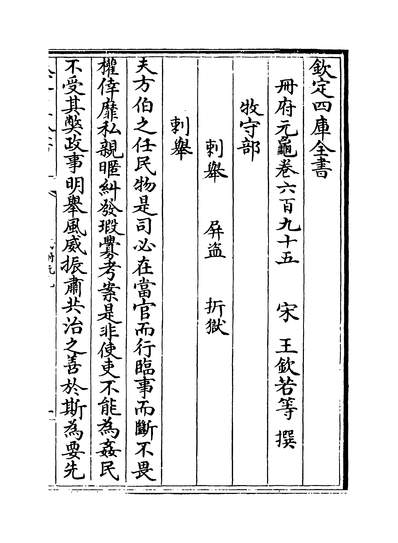 欽定四庫全書
冊府元龜卷六百九十五　宋　王欽若等　撰
牧守部
刺舉　屏盜　折獄
刺舉
夫方伯之任民物是司必在當官而行臨事而斷不畏
權倖靡私親暱糾發瑕釁考案是非使吏不能為姦民
不受其弊政事明舉風威振肅共治之善於斯為要先